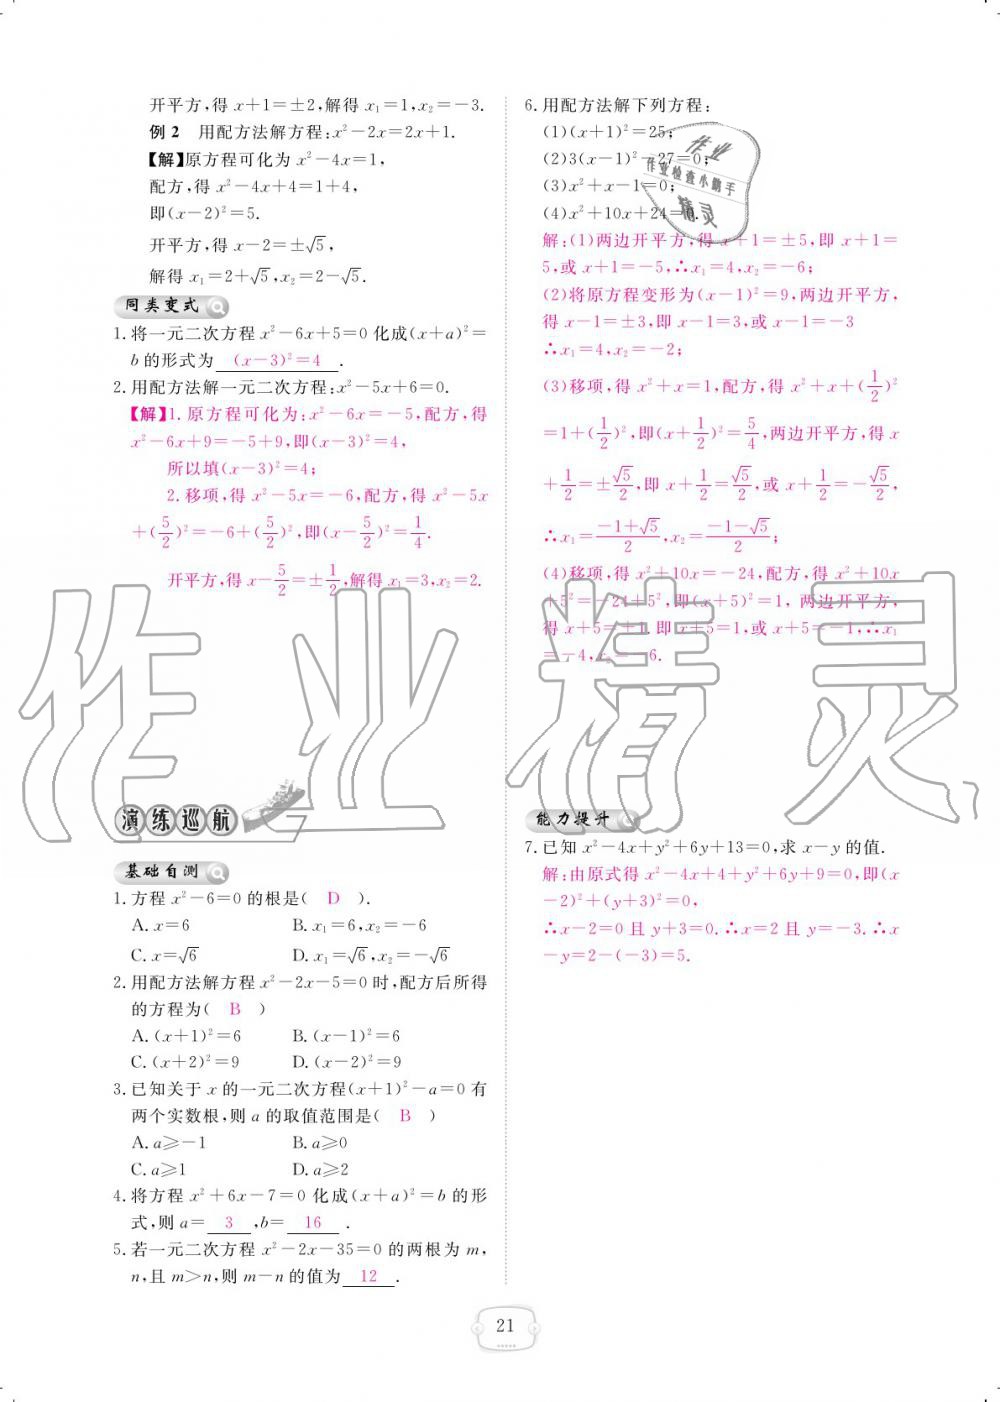 开平方,得 x+1=±2,解得 x₁=1,x₂=-3.
例 2 用配方法解方程:x²-2x=2x+1.
【解】原方程可化为 x²-4x=1,
配方,得 x²-4x+4=1+4,
即(x-2)²=5.
开平方,得 x-2=±√5,
解得 x₁=2+√5,x₂=2-√5.
同类变式
1. 将一元二次方程 x²-6x+5=0 化成(x+a)²=
b 的形式为 (x-3)²=4 .
2. 用配方法解一元二次方程:x²-5x+6=0.
【解】1. 原方程可化为:x²-6x=-5,配方,得
x²-6x+9=-5+9,即(x-3)²=4,
所以填(x-3)²=4;
2. 移项,得 x²-5x=-6,配方,得 x²-5x
+(5/2)²=-6+(5/2)²,即(x-5/2)²=1/4.
开平方,得 x-5/2=±1/2,解得 x₁=3,x₂=2.
演练巡航
基础自测
1. 方程 x²-6=0 的根是( D ).
A. x=6 B. x₁=6,x₂=-6
C. x=√6 D. x₁=√6,x₂=-√6
2. 用配方法解方程 x²-2x-5=0 时,配方后所得
的方程为( B )
A. (x+1)²=6 B. (x-1)²=6
C. (x+2)²=9 D. (x-2)²=9
3. 已知关于 x 的一元二次方程(x+1)²-a=0 有
两个实数根,则 a 的取值范围是( B )
A. a⩾-1 B. a⩾0
C. a⩾1 D. a⩾2
4. 将方程 x²+6x-7=0 化成(x+a)²=b 的形
式,则 a= 3 ,b= 16 .
5. 若一元二次方程 x²-2x-35=0 的两根为 m,
n,且 m>n,则 m-n 的值为 12 .
6. 用配方法解下列方程:
(1)(x+1)²=25;
(2)3(x-1)²-27=0;
(3)x²+x-1=0;
(4)x²+10x+24=0.
解:(1)两边开平方,得 x+1=±5,即 x+1=
5,或 x+1=-5,∴x₁=4,x₂=-6;
(2)将原方程变形为(x-1)²=9,两边开平方,
得 x-1=±3,即 x-1=3,或 x-1=-3
∴x₁=4,x₂=-2;
(3)移项,得 x²+x=1,配方,得 x²+x+(1/2)²
=1+(1/2)²,即(x+1/2)²=5/4,两边开平方,得 x
+1/2=±√5/2,即 x+1/2=√5/2,或 x+1/2=-√5/2,
∴x₁=(-1+√5)/2,x₂=(-1-√5)/2;
(4)移项,得 x²+10x=-24,配方,得 x²+10x
+5²=-24+5²,即(x+5)²=1,两边开平方,
得 x+5=±1.即 x+5=1,或 x+5=-1,∴x₁
=-4,x₂=-6.
能力提升
7. 已知 x²-4x+y²+6y+13=0,求 x-y 的值.
解:由原式得 x²-4x+4+y²+6y+9=0,即(x
-2)²+(y+3)²=0,
∴x-2=0 且 y+3=0.∴x=2 且 y=-3.∴x
-y=2-(-3)=5.
21
作业
作业检查小帮手
精灵
作业精灵